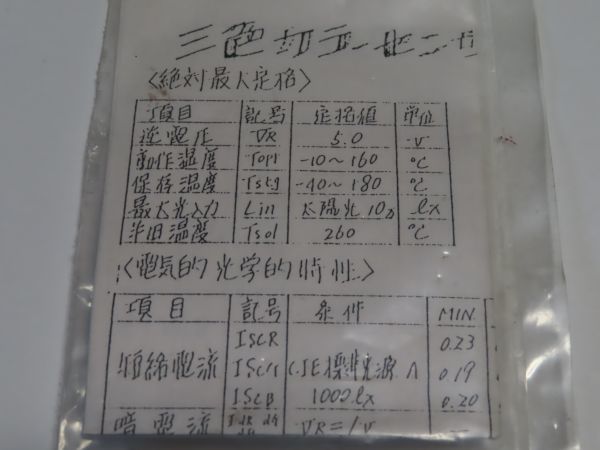 三色カラーセンサ
〈絶対最大定格〉
項目 記号 定格値 単位
逆電圧 VR 5.0 V
動作温度 Topr -10~+60 ℃
保存温度 Tstg -40~+80 ℃
最大光入力 Lin 太陽光 lx
半田温度 Tsol 260 ℃
〈電気的光学的特性〉
項目 記号 条件 MIN
ISCR 0.23
短絡電流 ISCG C.I.E標準光源A 0.19
ISCB 1000lx 0.20
暗電流 VR=1V —